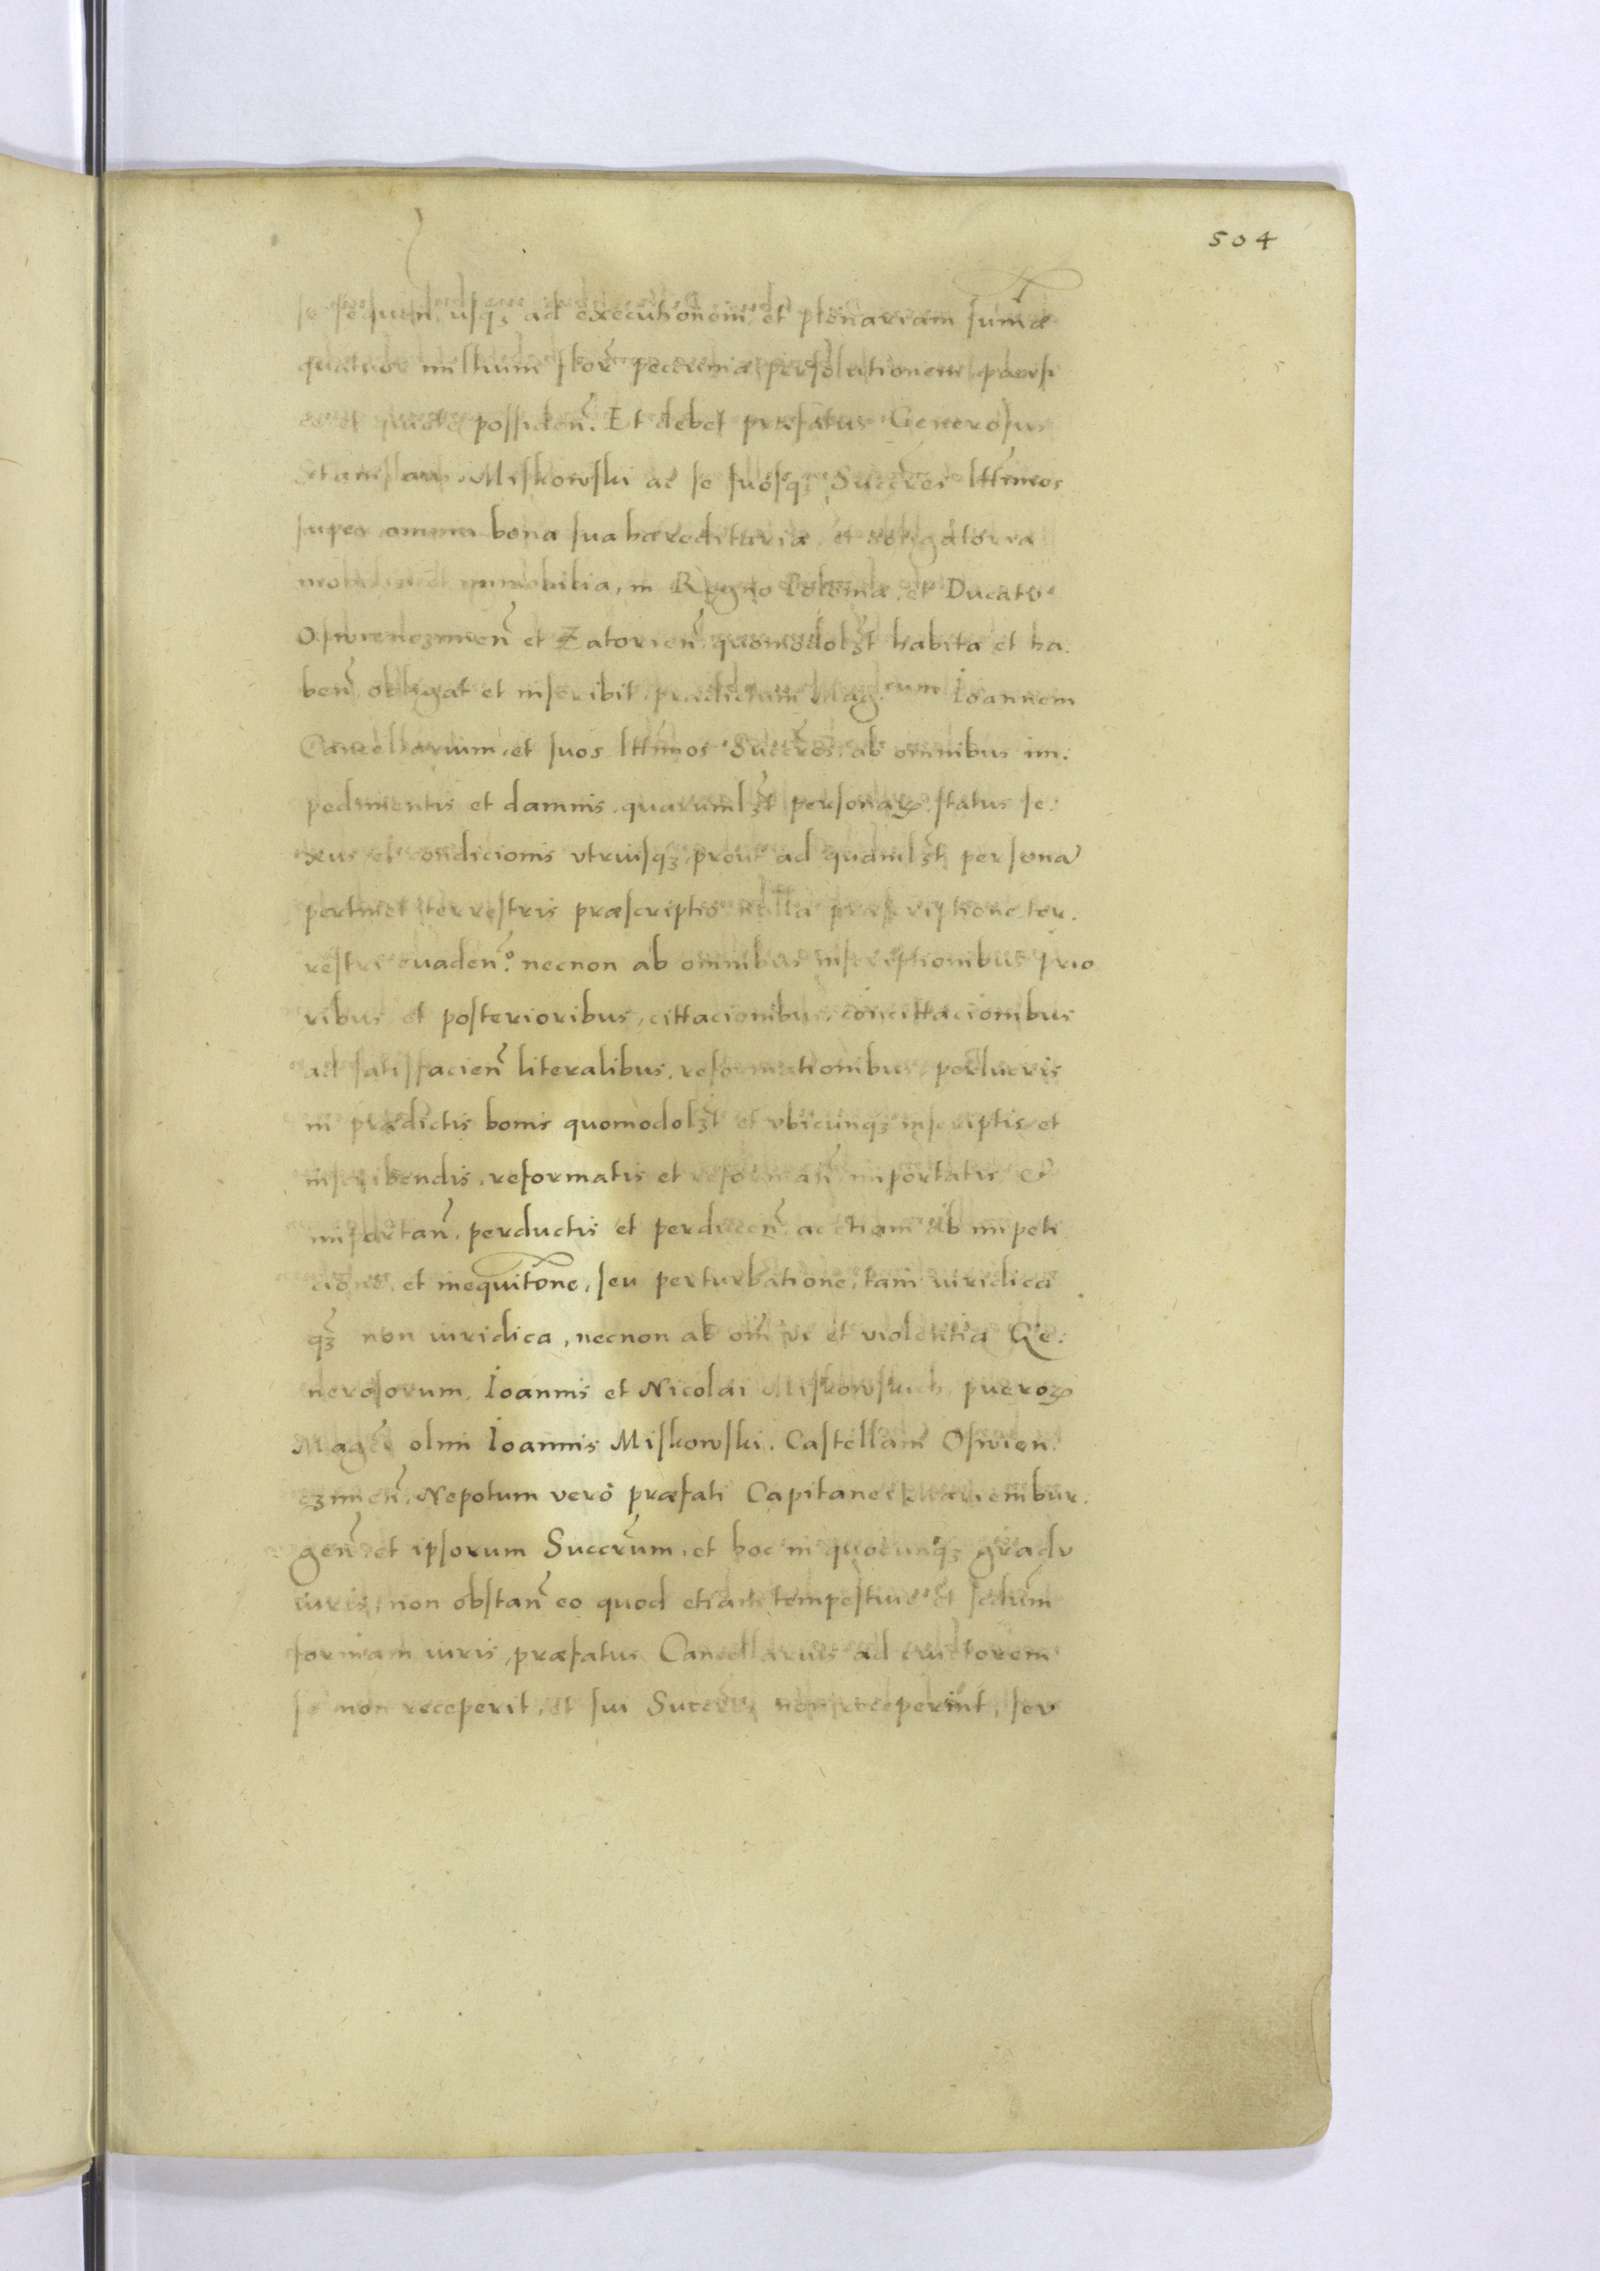 504
se sequen̄ usqȝ ad executionem et plenariam sum̄æ
quatuor millium flor̄ pecuniæ persolutionem
et possiden̄. Et debet præfatus Generosus
Stanislaus Miskowski ac se suosqȝ Succr̄es lttīmos
super omnia bona sua hæreditaria et obligatoria
mobilia et immobilia, in Regno Poloniæ, et Ducatu
Oswienczimen̄ et Zatorien̄ quomodolȝt habita et ha.
ben̄ obligat et inscribit prædictum Mag.cum Ioannem
Cancellarium et suos lttīmos Succr̄es, ab omnibus im.
pedimentis et damnis quarumlȝt personaꝝ status se:
xus et condicionis vtriusqȝ, prout ad quamlȝt persona
pertinet terrestris præscriptio nulla præscriptione ter.
restri euaden̄. necnon ab omnibus inscriptionibus prio
ribus et posterioribus, cittacionibus, concittacionibus
ad satisfacien̄ literalibus, reformationibus, perlucris
in prædictis bonis quomodolȝt et vbicunqȝ inscriptis et
inscribendis, reformatis et reforman̄ importatis &
importan̄, perductis et perducen̄ ac etiam ab impeti
cione, et inequitōne, seu perturbatione, tam iuridica
qȝ non iuridica, necnon ab om̄i vi et violentia Ge:
nerosorum, Ioannis et Nicolai Miskowskich pueroꝝ
Mag.ci olim Ioannis Miskowski. Castellani Oswien.
czimen̄, Nepotum verò præfati Capitanei Mariembur.
gen̄ et ipsorum Succr̄um, et hoc in quocunqȝ gradu
iuris, non obstan̄ eo quod etiam tempestiue et scdum̄
formam iuris, præfatus Cancellarius ad euictorem
se non receperit, et sui Succr̄es non receperint, seu